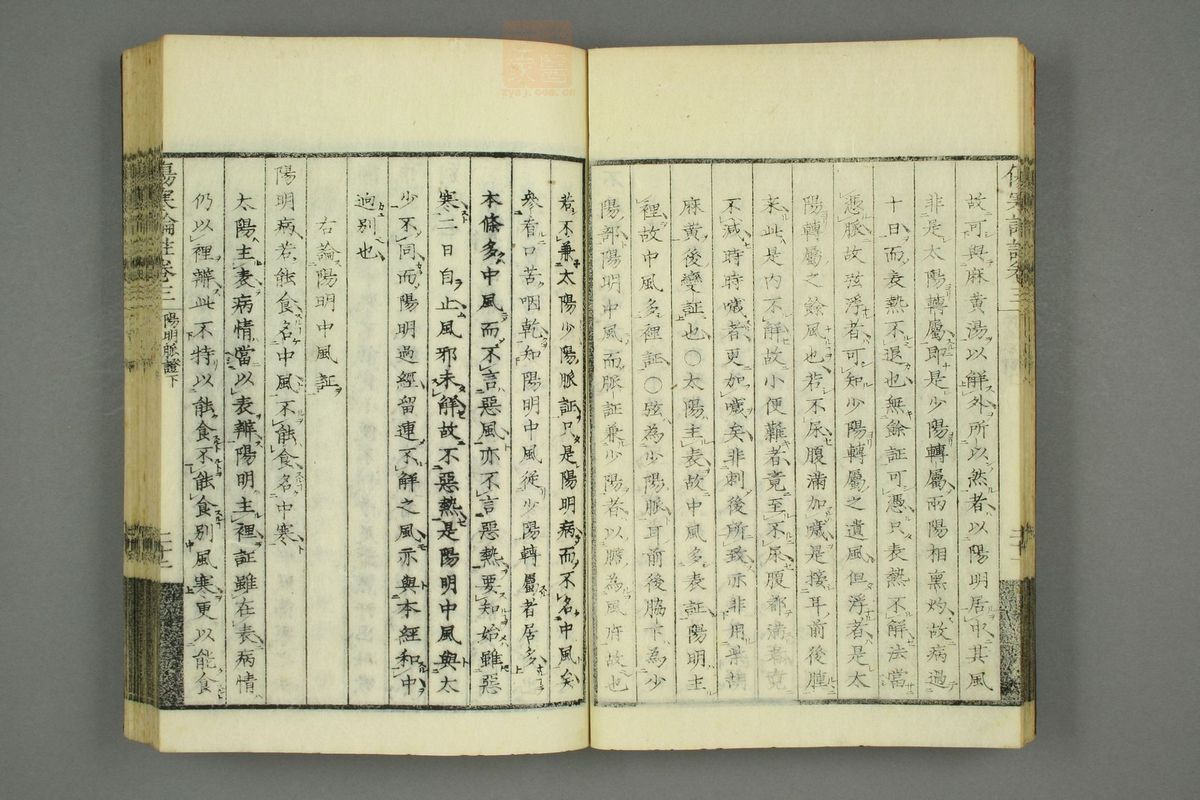 故可與麻黃湯以解外所以然者以陽明居中其風
非是太陽轉屬即是少陽轉屬兩陽相熏灼故病過
十日而表熱不退也無餘証可憑只表熱不解法當
憑脈故弦浮者可知少陽轉屬之遺風但浮者是太
陽轉屬之餘風也若不尿腹滿加噦是接耳前後腫
來此是內不解故小便難者竟至不尿腹都滿者竟
不減時時噦者更加噦矣非刺後所致亦非用柴胡
麻黃後變証也○太陽主表故中風多表証陽明主
裡故中風多裡証○弦為少陽脈耳前後脇下為少
陽部陽明中風而脈証兼少陽者以膽為風府故也
若不兼太陽少陽脈証只是陽明病而不名中風矣
參看口苦咽乾知陽明中風從少陽轉屬者居多
本條多中風而不言惡風亦不言惡熱要知始雖惡
寒二日自止風邪未解故不惡熱是陽明中風與太
少不同而陽明過經留連不解之風亦與本經初中
逈別也
右論陽明中風証
陽明病若能食名中風不能食名中寒
太陽主表病情當以表辨陽明主裡証雖在表病情
仍以裡辨此不特以能食不能食別風寒更以能食
傷寒論註卷三
陽明脈證下